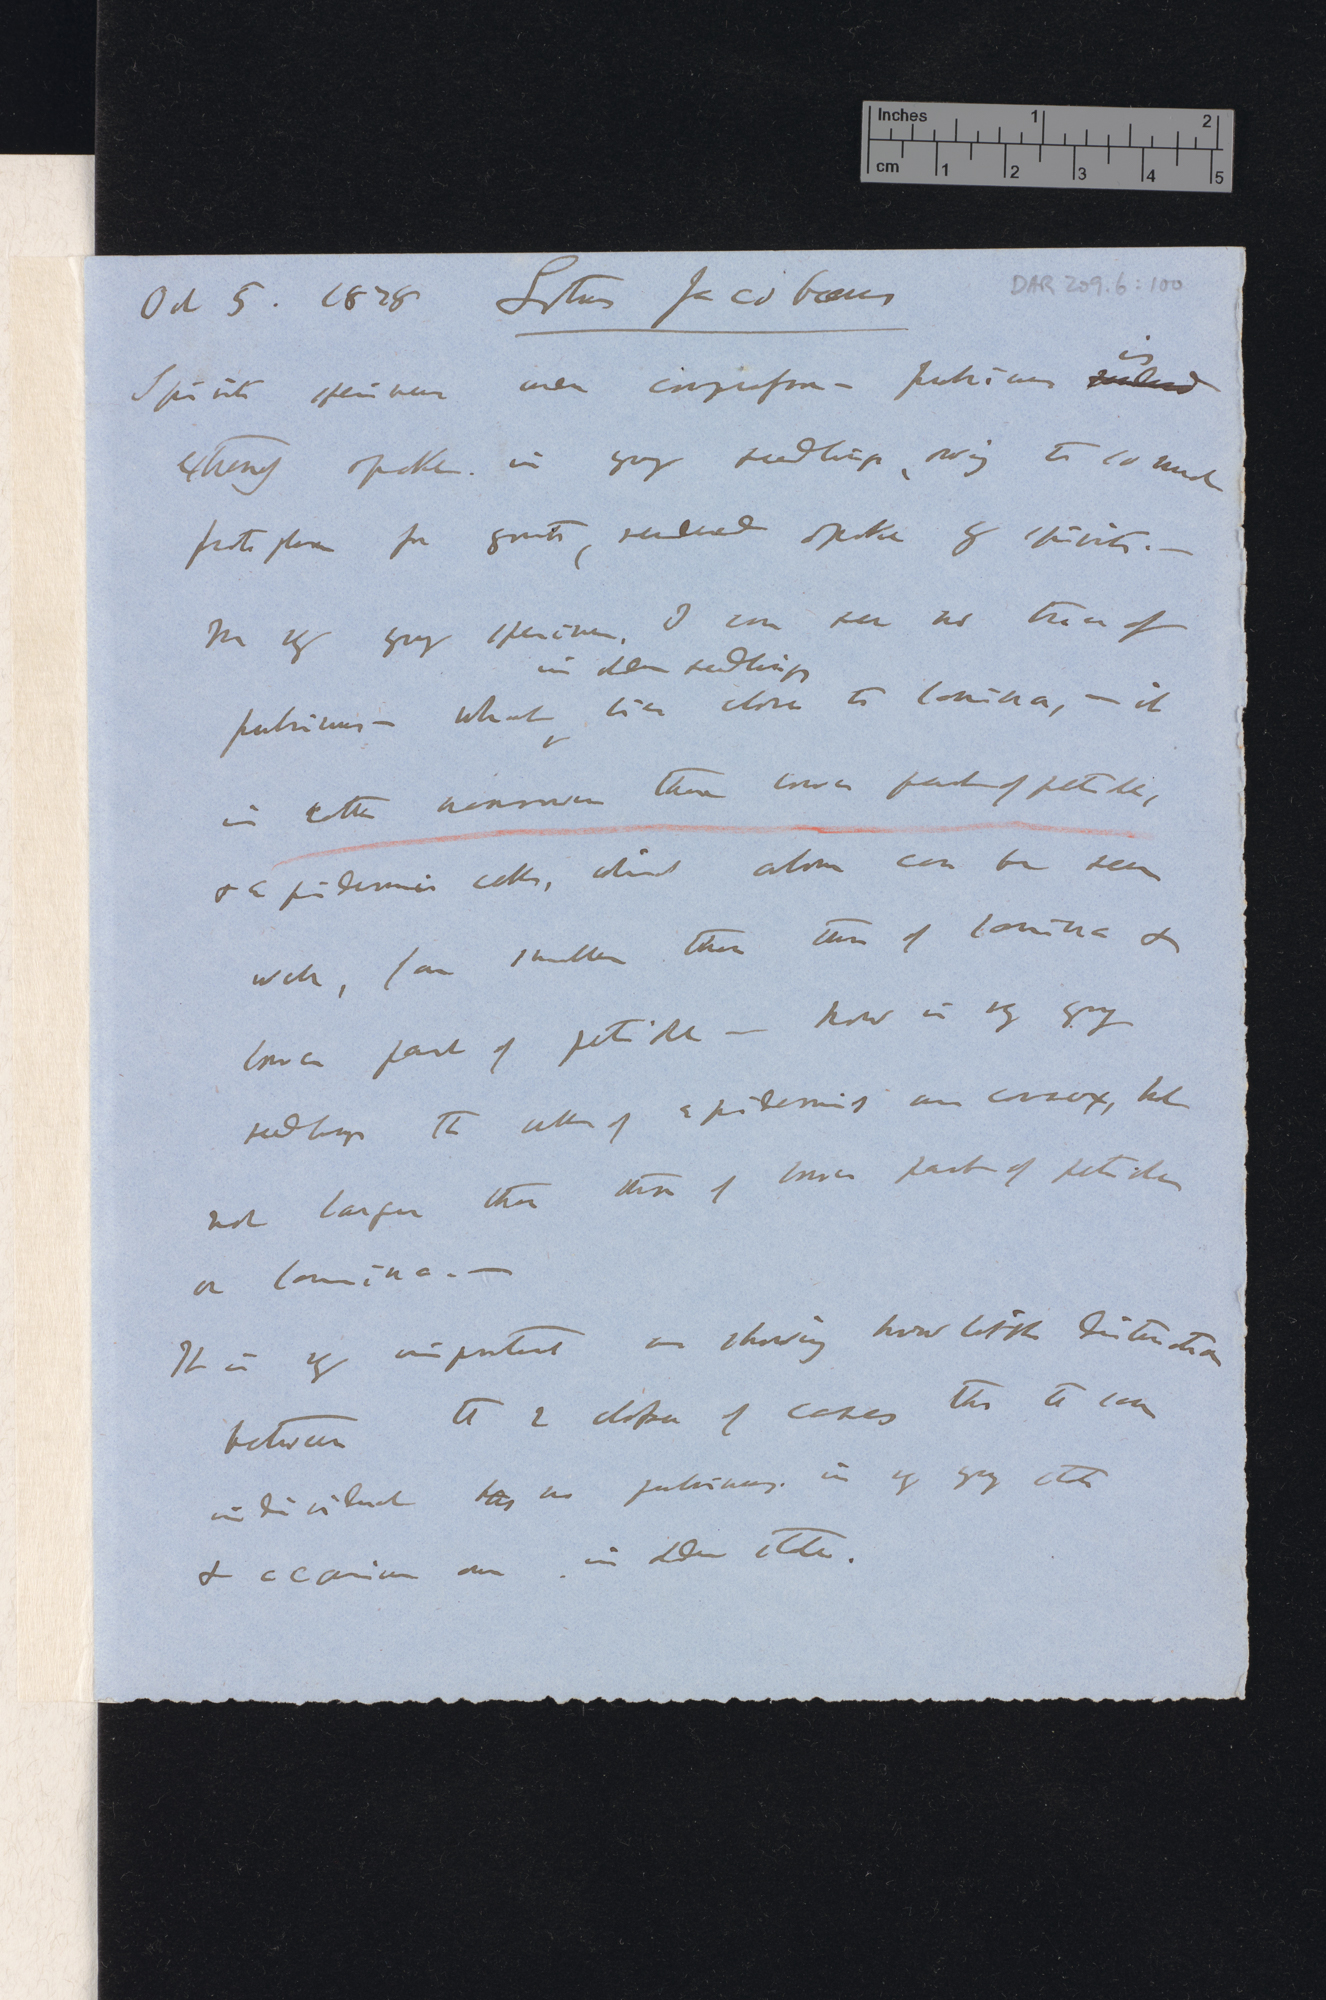 Inches 1 2
cm 1 2 3 4 5
DAR 209.6:100
Oct 5. 1878 Lotus Jacobæus
Spirits specimens were — pulvinus is
extremely opake in young seedlings, owing to so much
protoplasm for growth, rendered opake by spirits.—
In very young specimens, I can see no trace of
in older seedlings
pulvinus — what lies close to lamina, — it
is rather narrower than lower part of petiole,
& epidermis cells, which alone can be seen
well, far smaller than those of lamina &
lower part of petiole — Now in very young
seedlings the cells of epidermis are convex, but
not larger than those of lower part of petioles
or lamina.—
It is very important as showing how little distinction
between the 2 classes of cases that the same
individual has no pulvinus in very young state
& acquires one in older state.